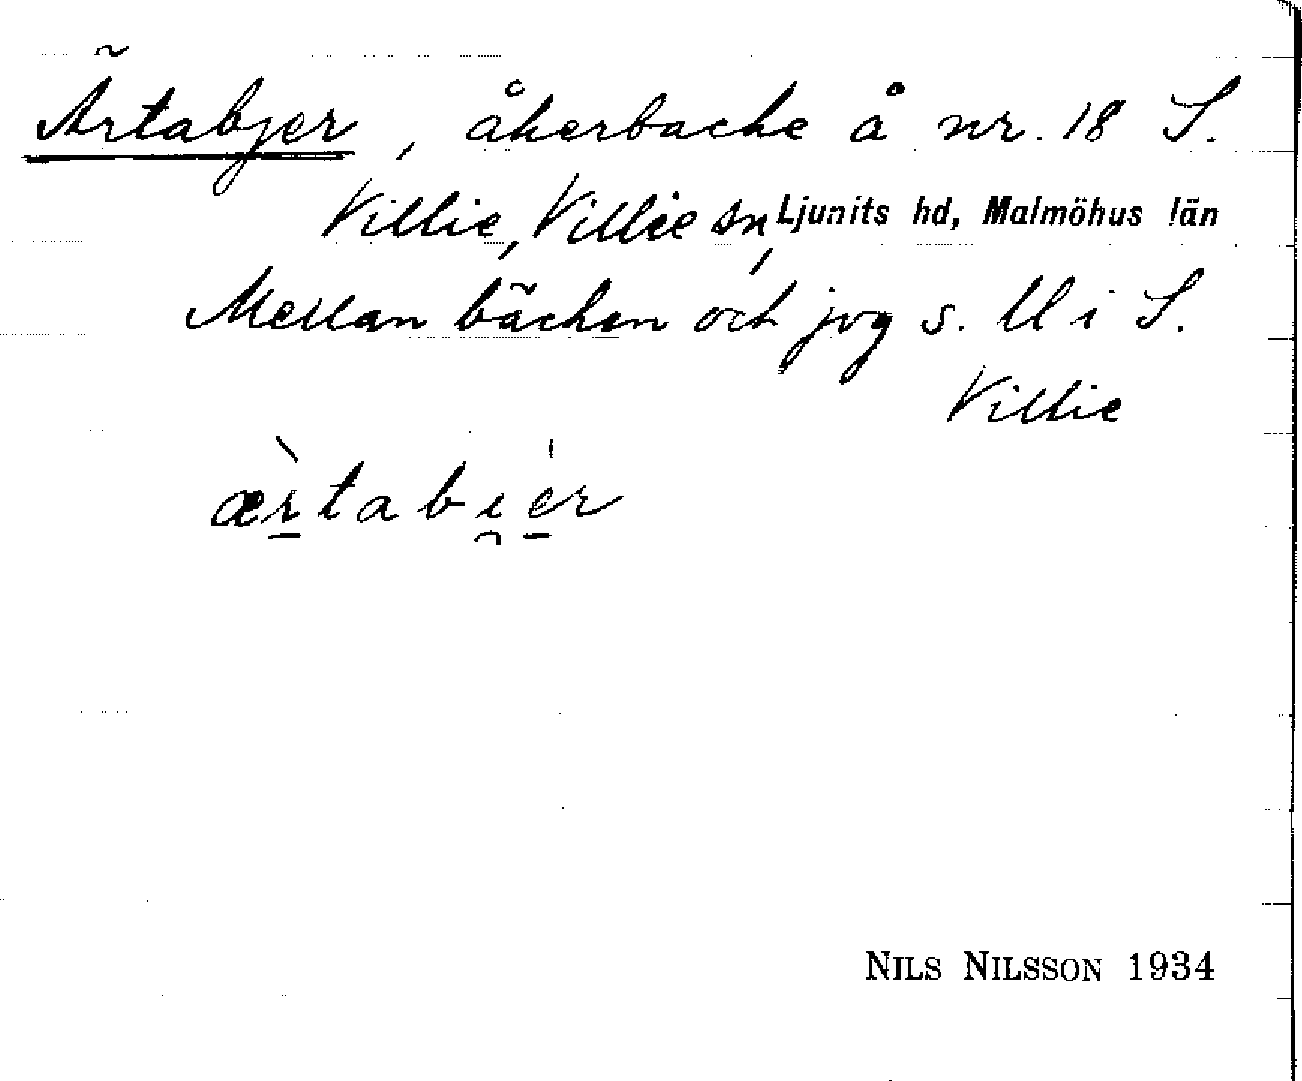 Ärtabjer, åkerbacke å nr. 18 S.
Villie, Villie sn, Ljunits hd, Malmöhus län
Mellan bäcken och jvg s. ll i S.
Villie
ær̀tabi̯ér
NILS NILSSON 1934